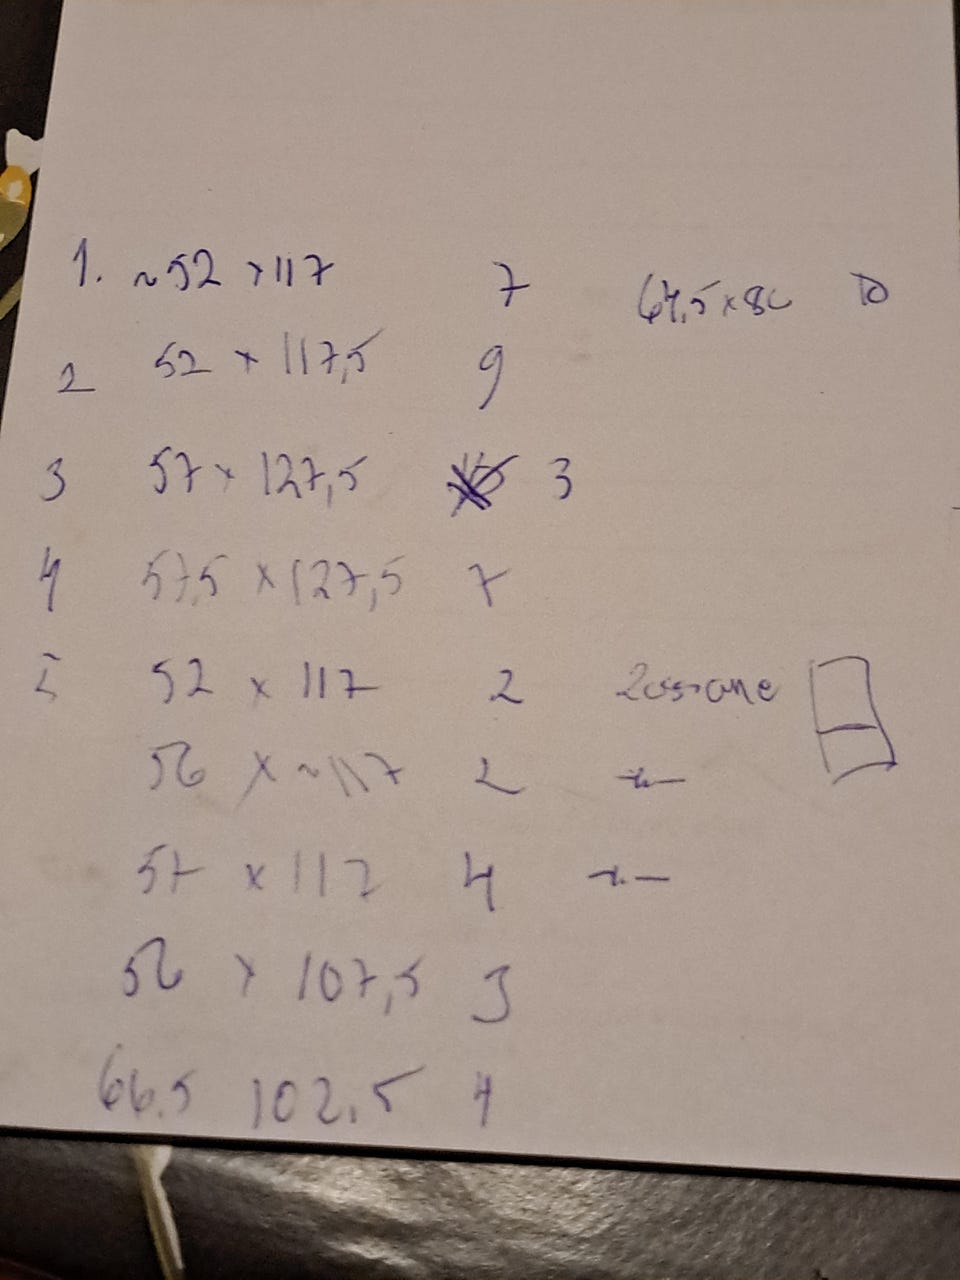 1. ~52 x 117 7 64,5 x 86 10
2 52 x 117,5 9
3 57 x 127,5 3
4 57,5 x 127,5 7
5 52 x 117 2
56 x ~117 2 -"-
57 x 117 4 -"-
56 x 107,5 3
66.5 102.5 4